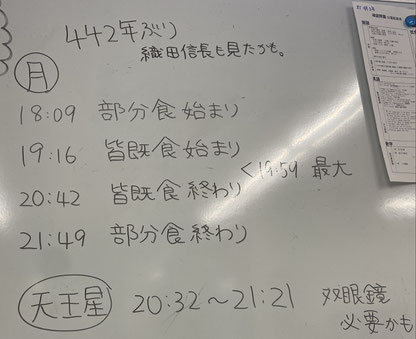 442年ぶり
織田信長も見たかも。
月
18:09 部分食始まり
19:16 皆既食始まり
<19:59 最大
20:42 皆既食終わり
21:49 部分食終わり
天王星 20:32～21:21 双眼鏡
必要かも